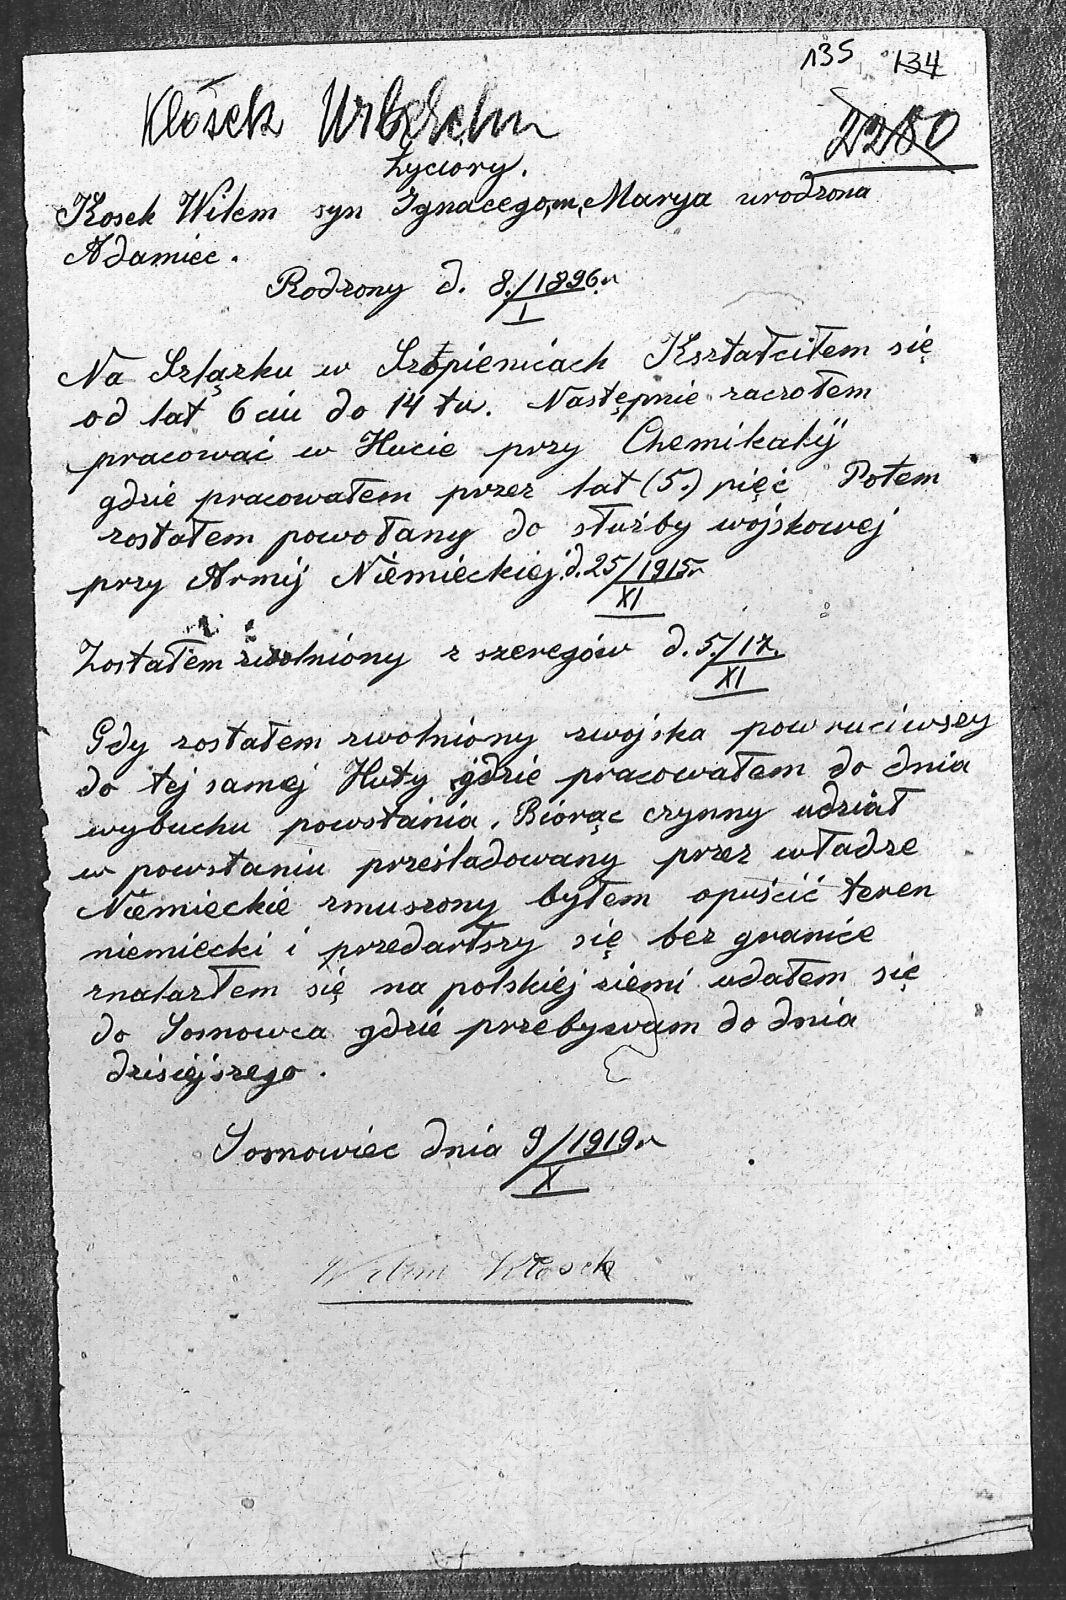 135 134
2280
Kłosek
Życiory.
Kosek Wilem syn Ignacego, m, Marya urodzona
Adamiec.
Rodzony d. 8./I 1896 r
Na Szlązku w Szopienicach Kształciłem się
od lat 6 ciu do 14 tu. Następnie zaczołem
pracować w Hucie przy Chemikalij
gdzie pracowałem przez lat (5.) pięć Potem
zostałem powołany do służby wojskowej
przy Armij Niemieckiej d. 25/XI 1915 r
Zostałem zwolniony z szeregów d. 5./XI 17.
Gdy zostałem zwolniony zwojska powruciwszy
do tej samej Huty gdzie pracowałem do dnia
wybuchu powstania. Biorąc czynny udział
w powstaniu prześladowany przez władze
Niemieckie zmuszony byłem opuścić teren
niemiecki i przedartszy się bez granice
znalazłem się na polskiej ziemi udałem się
do Sosnowca gdzie przebyzwam do dnia
dzisiejszego.
Sosnowiec dnia 9/X 1919 r
Wilem Kłosek